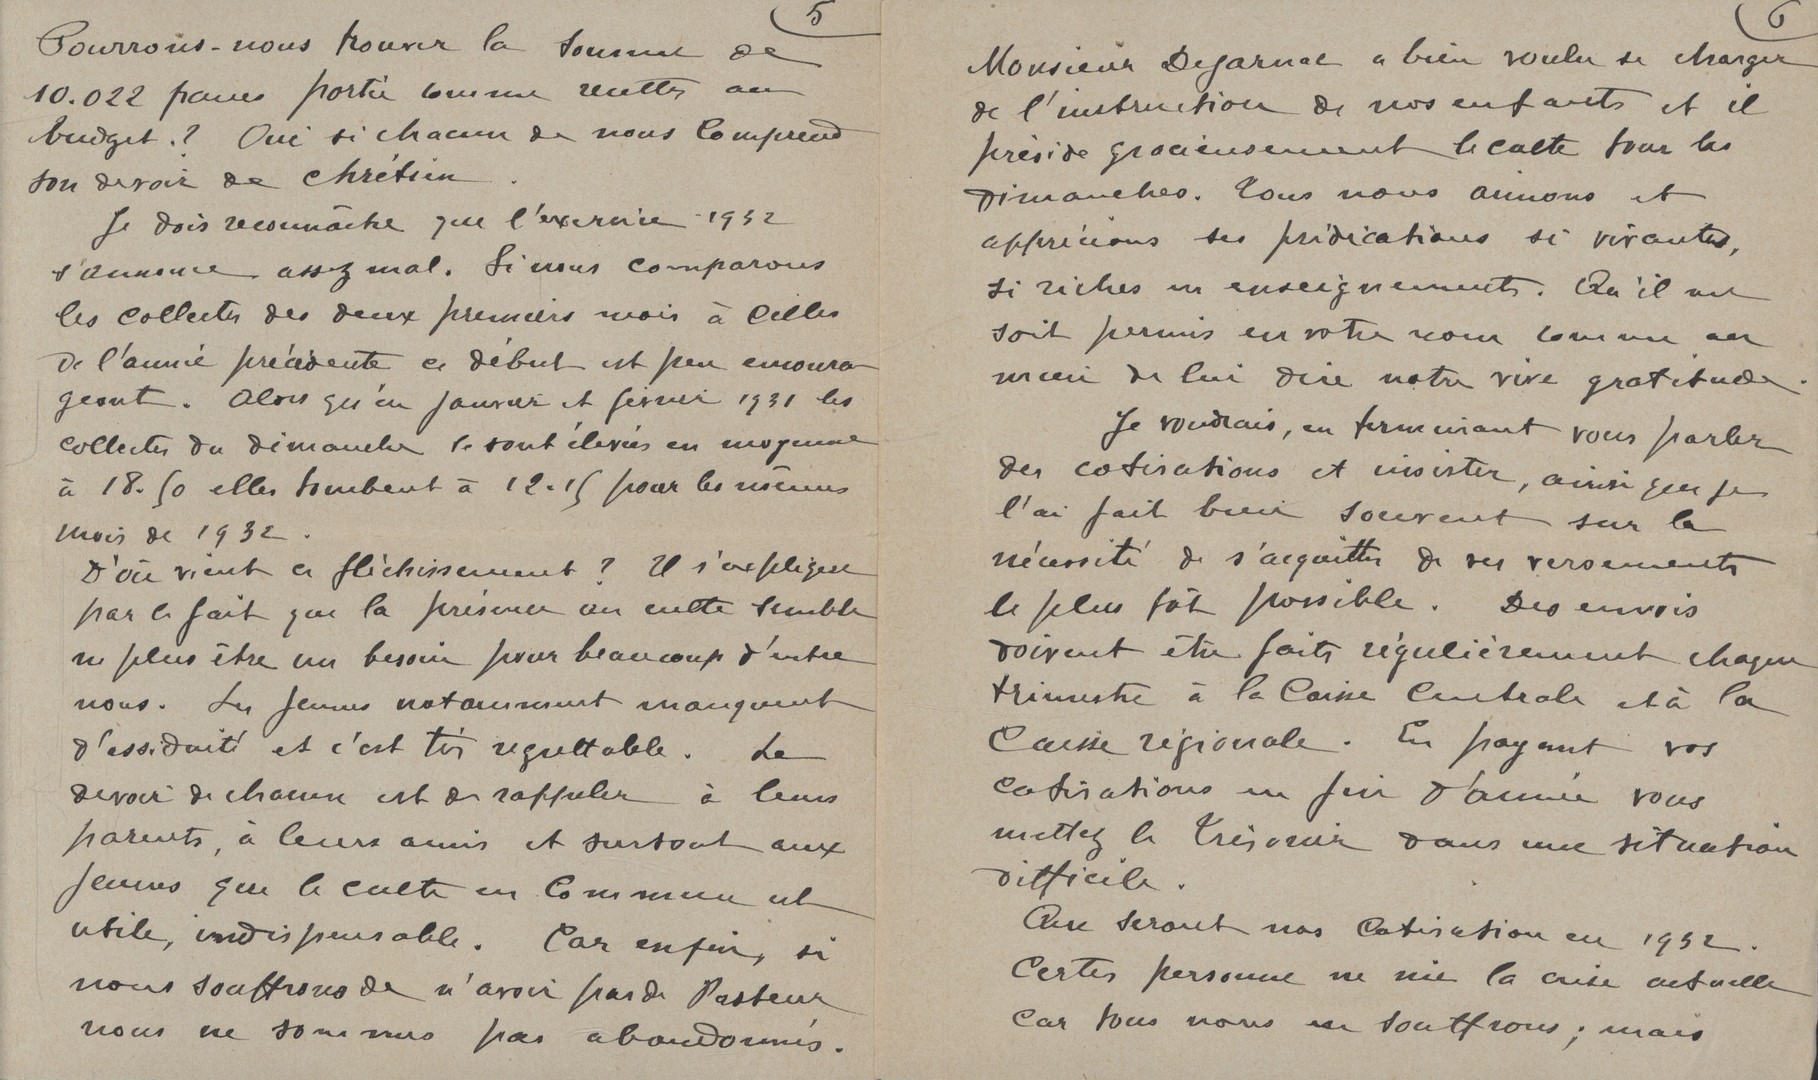 5
Pourrons-nous trouver la somme de
10.022 francs portée comme recettes au
budget.? Oui si chacun de nous comprend
son devoir de chrétien.
Je dois reconnaître que l'exercice 1932
s'annonce assez mal. Si nous comparons
les collectes des deux premiers mois à celles
de l'année précédente ce début est peu encoura
geant. Alors qu'en janvier et février 1931 les
collectes du dimanche se sont élevées en moyenne
à 18.50 elles tombent à 12.15 pour les mêmes
mois de 1932.
D'où vient ce fléchissement? Il s'explique
par le fait que la présence au culte semble
ne plus être un besoin pour beaucoup d'entre
nous. Les jeunes notamment manquent
d'assiduité et c'est très regrettable. Le
devoir de chacun est de rappeler à leurs
parents, à leurs amis et surtout aux
jeunes que le culte en commun est
utile, indispensable. Car enfin, si
nous souffrons de n'avoir pas de Pasteur
nous ne sommes pas abandonnés.
6
Monsieur a bien voulu se charger
de l'instruction de nos enfants et il
préside gracieusement le culte tous les
dimanches. Tous nous aimons et
apprécions ses prédications si vivantes,
si riches en enseignements. Qu'il me
soit permis en votre nom comme au
mien de lui dire notre vive gratitude.
Je voudrais, en terminant vous parler
des cotisations et insister, ainsi que je
l'ai fait bien souvent sur la
nécessité de s'acquitter de ses versements
le plus tôt possible. Des envois
doivent être faits régulièrement chaque
trimestre à la Caisse Centrale et à la
Caisse régionale. En payant vos
cotisations en fin d'année vous
mettez le Trésorier dans une situation
difficile.
Que seront nos cotisation en 1932.
Certes personne ne nie la crise actuelle
car tous nous en souffrons; mais